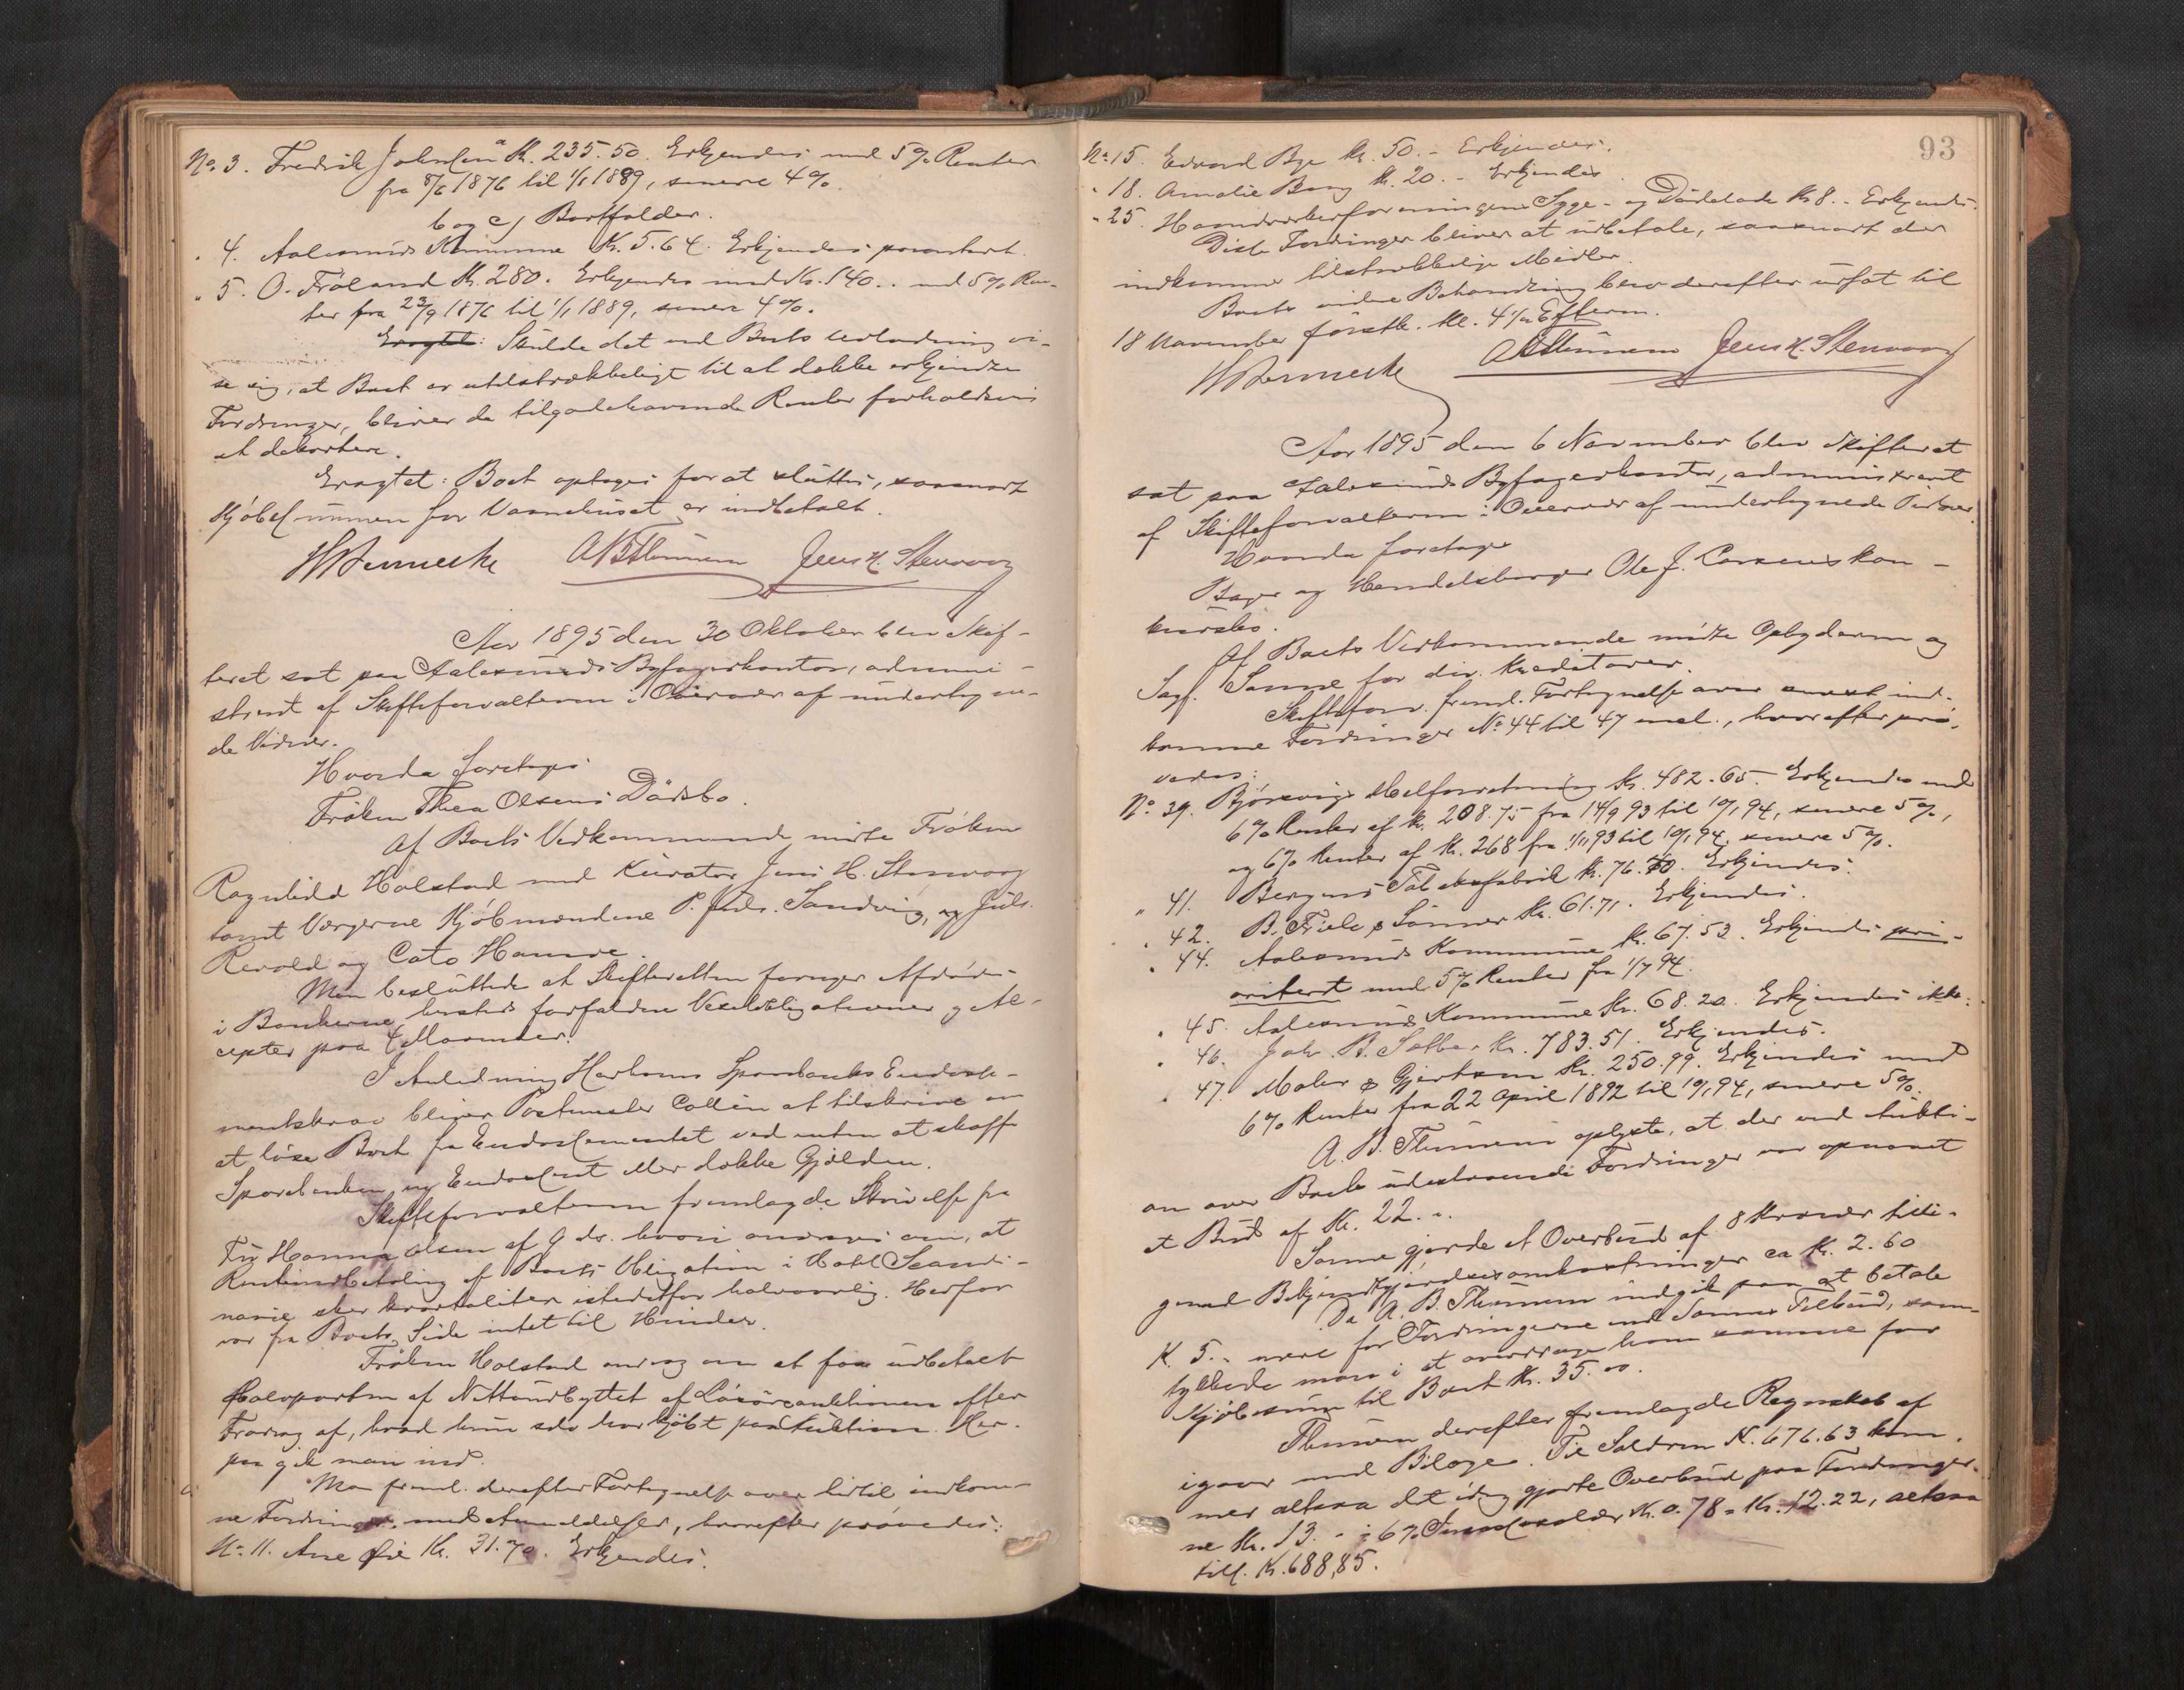 No. 3. Fredrik Johnsen Kr. 235.50. Erkjendes med 5% Renter
fra 8/6 1876 til 1/1 1889, senere 4%.
b og c) Bortfalder.
" 4. Aalesunds Kommune Kr. 5.64. Erkjendes
" 5. O. Fröland Kr. 280. Erkjendes med Kr. 140.. med 5% Ren-
ter fra 23/9 1876 til 1/1 1889, senere 4%.
Eragtet: Skulde det ved Boets Udlodning vi-
se sig, at Boet er utilstrækkeligt til at dække erkjendte
Fordringer, bliver de tilgodehavende Renter forholdsvis
at dekortere.
Eragtet: Boet optages for at sluttes, saasnart
Kjöbesummen for Vaanehuset er indbetalt.
Jens H. Stenvaag
Aar 1895 den 30 Oktober blev Skif-
teret sat paa Aalesunds Byfogedkontor, admini-
streret af Skifteforvalteren i Overvær af undertegne-
de Vidner.
Hvorda foretoges
Fröken Thea Olsens Dödsbo.
Af Boets Vedkommende mödte Fröken
Ragnhild Holstad med Kurator Jens H. Stenvaag
samt Vergerne Kjöbmændene P. Sandvig, og Juls.
Revold og Cato Hamre.
Man besluttede at Skifteretten fornyer Afdrag
i Bankerne forfaldne Vexelobligationer og Ak-
cepter paa 4 Maaneder.
I Anledning Harhams Sparebanks Endosse-
mentskrav bliver Postmester Collin at tilskrive om
at löse Boet fra Endossementet ved enten at skaffe
Sparebanken ny Endossent eller dække Gjælden.
Skifteforvalteren fremlagde Skrivelse fra
Fru Hanna Olsen af 9 ds. hvori andrages om, at
Rentindbetaling af Boets Obligation i Hotel Scandi-
navie sker kvartaliter istedetfor halvaarlig. Herfor
var fra Boets Side intet til Hinder.
Fröken Holstad androg om at faa udbetalt
Halvparten af Nettoudbyttet af Lösöreauktionen efter
Fradrag af, hvad hun selv har kjöbt paa Auktion. Her-
paa gik man ind.
Man freml. derefter Fortegnelse over hidtil indkom-
ne Fordringer med Anmeldelser, hvorefter prövedes:
No. 11. Ane Öie Kr. 31.70. Erkjendes.
93
No. 15. Edvard Bye Kr. 50.- Erkjendes.
" 18. Amalie Bang Kr. 20.- Erkjendes.
" 25. Haandverkerforeningens Syge- og Dödslade Kr 8.- Erkjendes.
Disse Fordringer bliver at udbetale, saasnart der
indkommer tilstrækkelige Midler.
Boets videre Behandling blev derefter udsat til
18 November förstk. Kl. 4½ Efterm.
Jens H. Stenvaag
Aar 1895 den 6 November blev Skifteret
sat paa Aalesunds Byfogedkontor, administreret
af Skifteforvalteren i Overvær af undertegnede Vidner.
Hvorda foretoges
Bager og Handelsborger Ole J. Larsens kon-
kursbo.
Af Boets Vedkommende mödte Opbyderen og
Sagf. Sanne for div. Kreditorer.
Skifteforv. freml. Fortegnelse over senest ind-
komne Fordringer No. 44 til 47 incl., hvorefter prö-
vedes:
No. 39. Björsvigs Melforretning Kr. 482.65. Erkjendes med
6% Renter af Kr. 208.75 fra 14/9 93 til 10/1 94, senere 5%,
og 6% Renter af Kr. 268 fra 1/11 93 til 10/1 94, senere 5%.
" 41. Bergens Tobaksfabrik Kr. 76.70. Erkjendes.
" 42. B. Friele & Sönner Kr. 61.71. Erkjendes.
" 44. Aalesunds Kommune Kr. 67.53. Erkjendes pri-
oriteret med 5% Renter fra 1/7 94.
" 45. Aalesunds Kommune Kr. 68.20. Erkjendes ikke.
" 46. Joh. B. Kr. 783.51. Erkjendes.
" 47. Maler & Gjertsen Kr. 250.99. Erkjendes med
6% Renter fra 22 April 1892 til 10/1 94, senere 5%.
A. B. Thunem oplyste, at der ved Aukti-
on over Boets udestaaende Fordringer var opnaaet
et Bud af Kr. 22.-.
Sanne gjorde et Overbud af 8 Kroner tilli-
gemed Bekjendtgjörelsesomkostninger ca Kr. 2.60
Da A. B. Thunem indgik paa at betale
K. 5.- mere for Fordringerne end Sannes Tilbud, sam-
tykkede man i at overdrage ham samme for
Kjöbesum til Boet Kr. 35.00.
Thunem derefter fremlagde Regnskab af
igaar med Bilage. Til Saldoen K. 676.63 kom-
mer altsaa det idag gjorte Overbud paa Fordringer-
ne Kr. 13.- ÷ 6% Kr. 0.78 = Kr. 12.22, altsaa
till. K. 688,85.